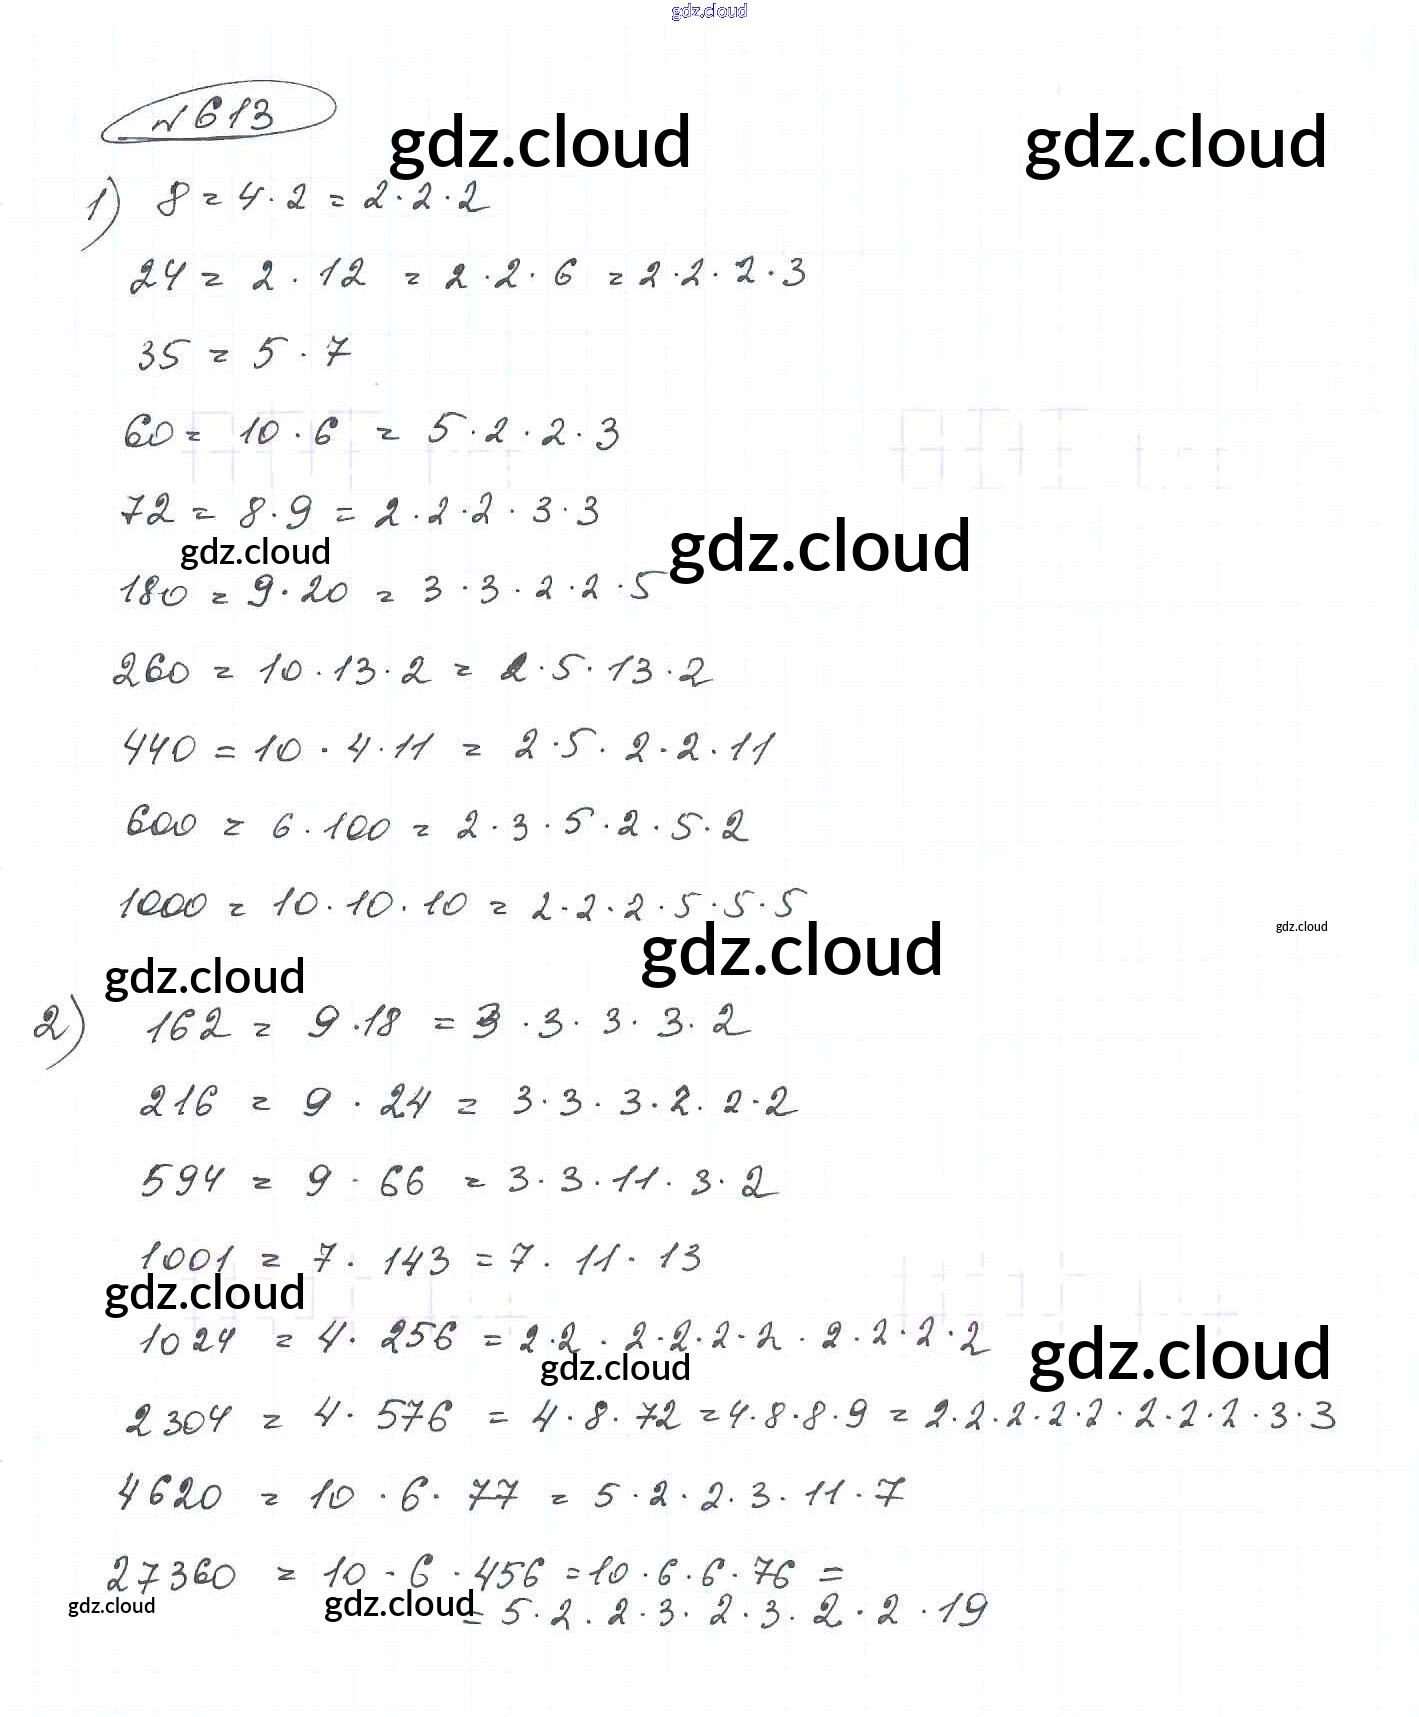 gdz.cloud
№613
gdz.cloud gdz.cloud
1) 8 = 4·2 = 2·2·2
24 = 2·12 = 2·2·6 = 2·2·2·3
35 = 5·7
60 = 10·6 = 5·2·2·3
72 = 8·9 = 2·2·2·3·3
gdz.cloud gdz.cloud
180 = 9·20 = 3·3·2·2·5
260 = 10·13·2 = 2·5·13·2
440 = 10·4·11 = 2·5·2·2·11
600 = 6·100 = 2·3·5·2·5·2
1000 = 10·10·10 = 2·2·2·5·5·5
gdz.cloud gdz.cloud gdz.cloud
2) 162 = 9·18 = 3·3·3·3·2
216 = 9·24 = 3·3·3·2·2·2
594 = 9·66 = 3·3·11·3·2
1001 = 7·143 = 7·11·13
gdz.cloud
1024 = 4·256 = 2·2·2·2·2·2·2·2·2·2
gdz.cloud gdz.cloud
2304 = 4·576 = 4·8·72 = 4·8·8·9 = 2·2·2·2·2·2·2·2·3·3
4620 = 10·6·77 = 5·2·2·3·11·7
27360 = 10·6·456 = 10·6·6·76 =
gdz.cloud gdz.cloud
= 5·2·2·3·2·3·2·2·19